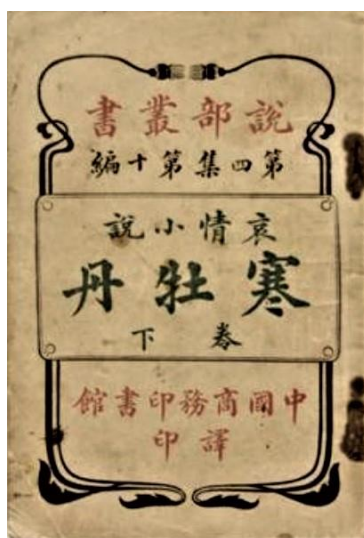 說部叢書
第四集第十編
哀情小說
寒牡丹
卷下
中國商務印書館
譯印